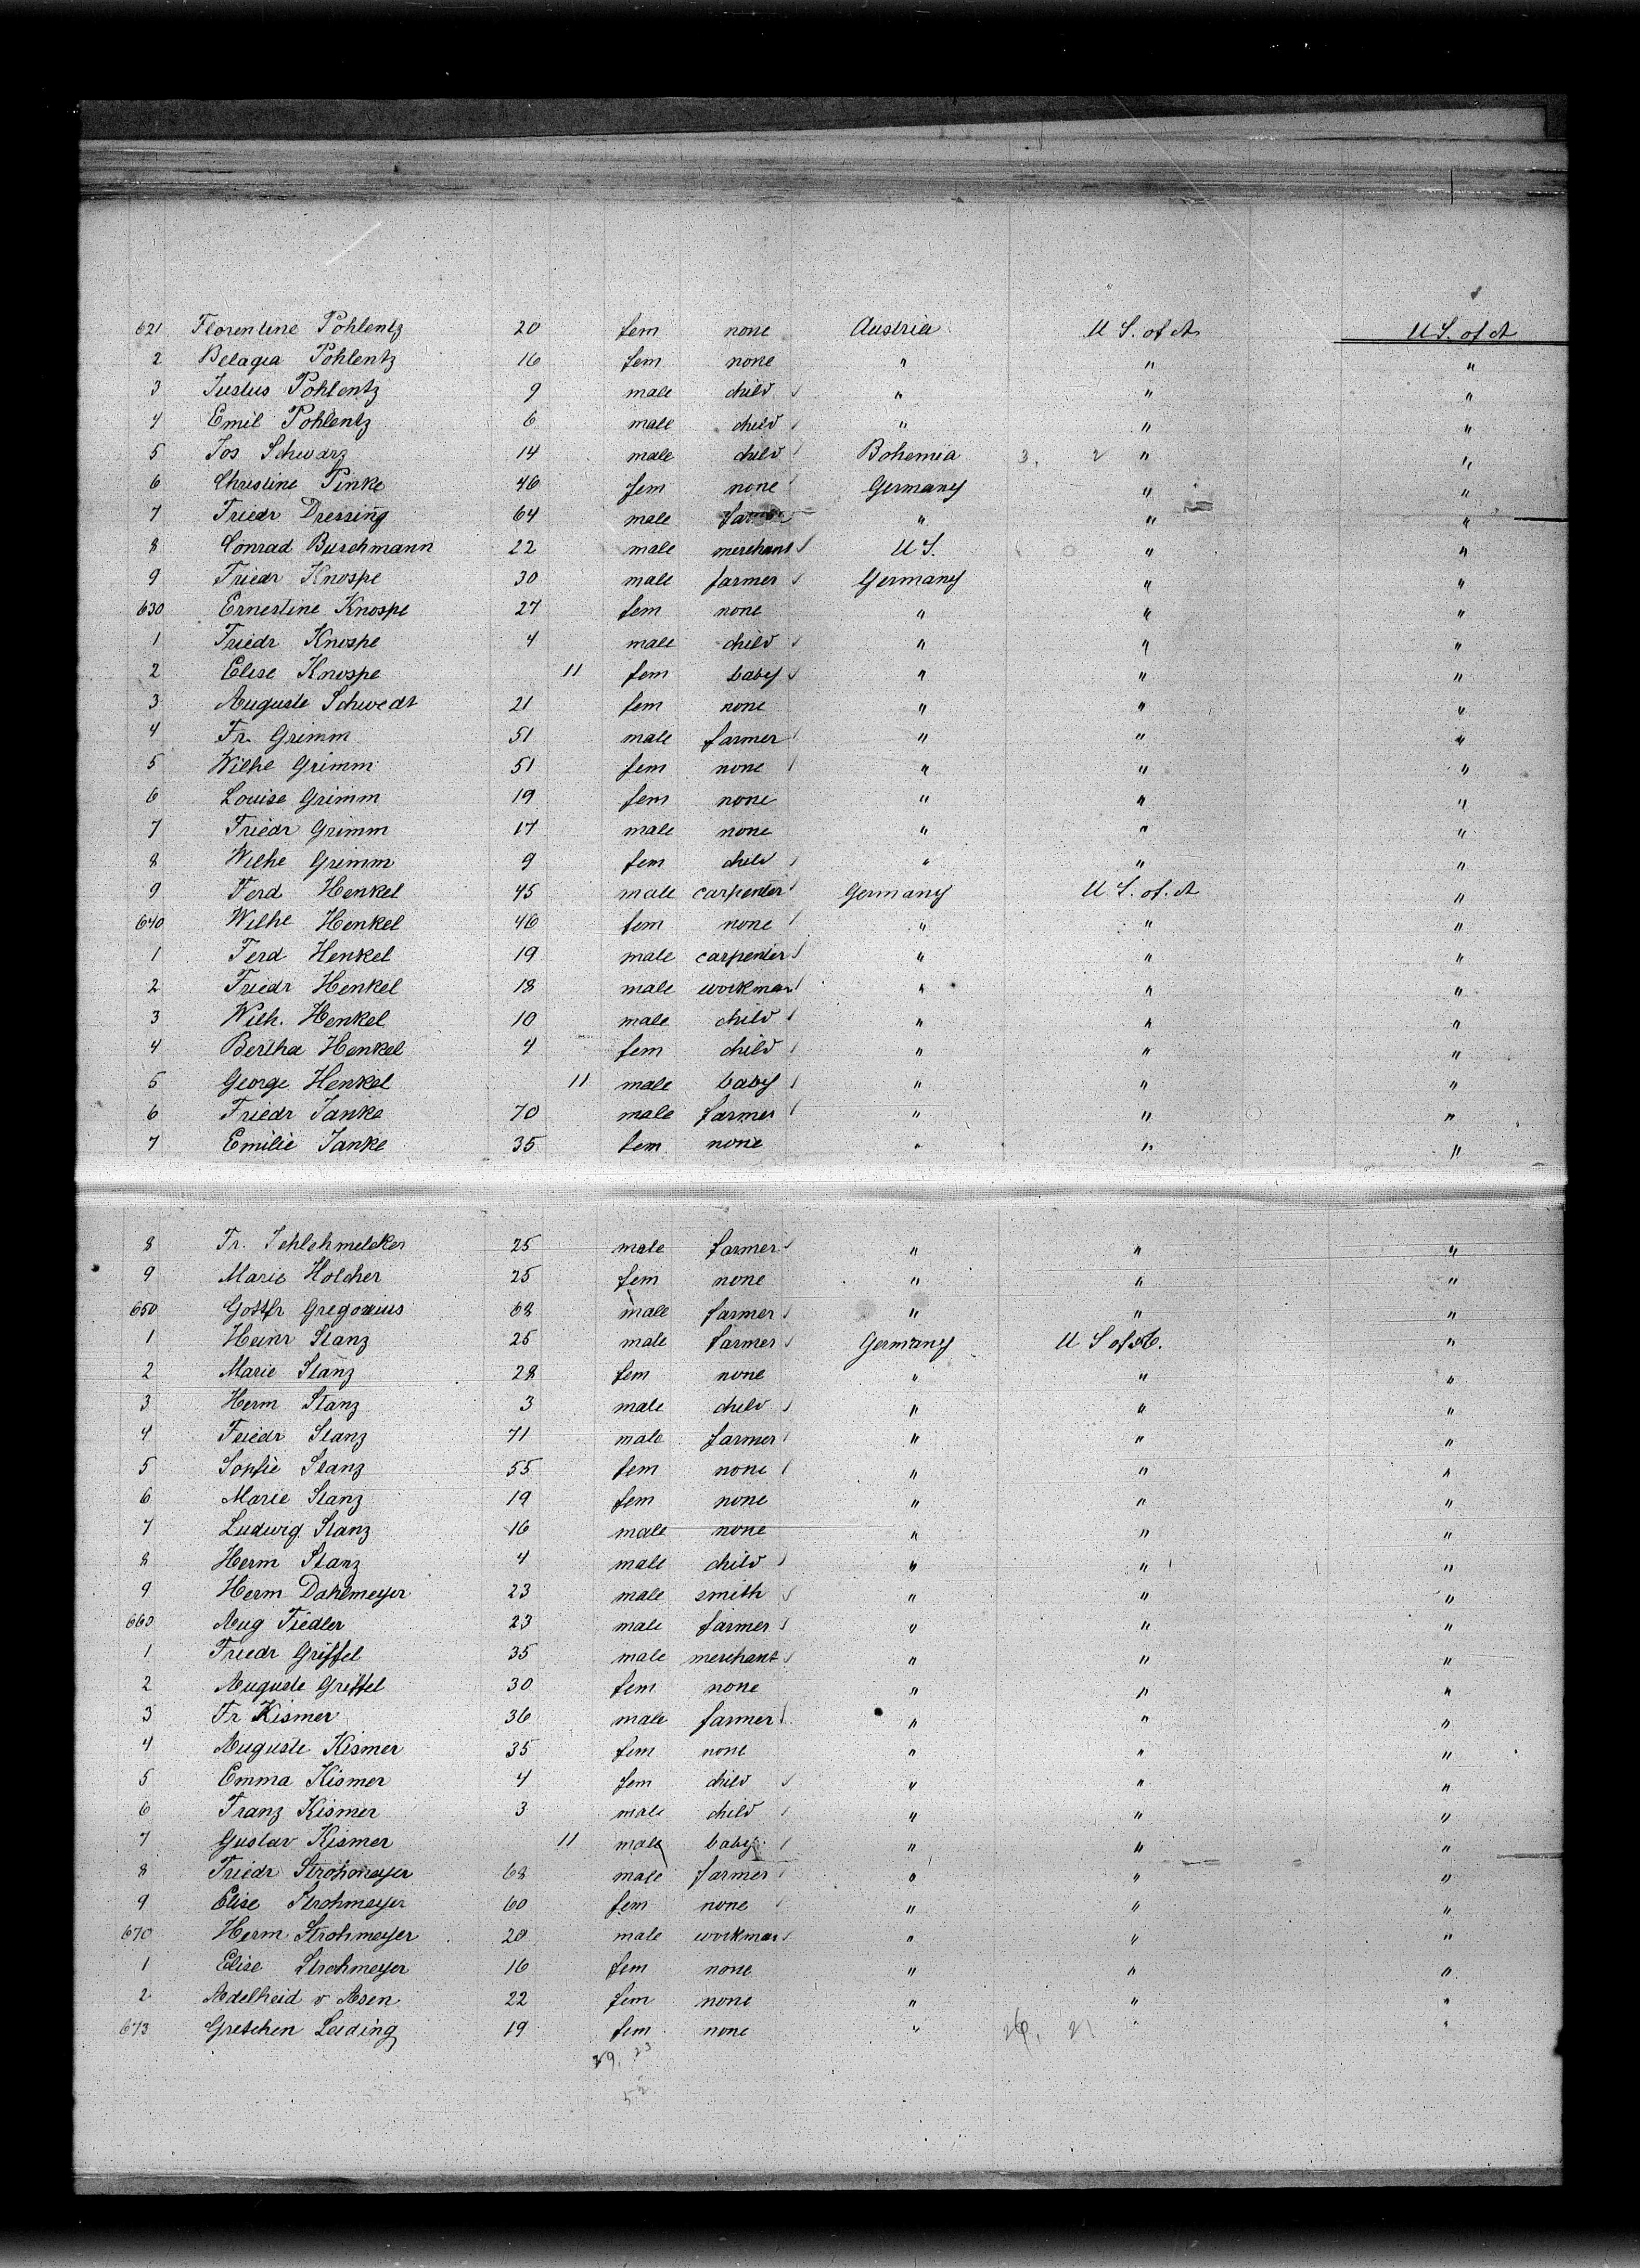 621 Florentine Pohlentz 20 fem none Austria U S. of A U S. of A
2 Belagia Pohlentz 16 fem none " " "
3 Justus Pohlentz 9 male child " " "
4 Emil Pohlentz 6 male child " " "
5 Jos Schwarz 14 male child Bohemia 3, 2 " "
6 Christine Pinke 46 fem none Germany " "
7 Friedr Dressing 64 male farmer " " "
8 Conrad Buschmann 22 male merchant U S. " "
9 Friedr Knospe 30 male farmer Germany " "
630 Ernestine Knospe 27 fem none " " "
1 Friedr Knospe 4 male child " " "
2 Elise Knospe 11 fem baby " " "
3 Auguste Schwedt 21 fem none " " "
4 Fr. Grimm 51 male farmer " " "
5 Wilhe Grimm 51 fem none " " "
6 Louise Grimm 19 fem none " " "
7 Friedr Grimm 17 male none " " "
8 Wilhe Grimm 9 fem child " " "
9 Ferd Henkel 45 male carpenter Germany U S. of. A "
640 Wilhe Henkel 46 fem none " " "
1 Ferd Henkel 19 male carpenter " " "
2 Friedr Henkel 18 male workman " " "
3 Wilh. Henkel 10 male child " " "
4 Bertha Henkel 4 fem child " " "
5 George Henkel 11 male baby " " "
6 Friedr Janke 70 male farmer " " "
7 Emilie Janke 35 fem none " " "
8 Fr. 25 male farmer " " "
9 Marie Holcher 25 fem none " " "
650 Gottfr Gregorius 68 male farmer " " "
1 Heinr Stanz 25 male farmer Germany U S of A. "
2 Marie Stanz 28 fem none " " "
3 Herm Stanz 3 male child " " "
4 Friedr Stanz 71 male farmer " " "
5 Sophie Stanz 55 fem none " " "
6 Marie Stanz 19 fem none " " "
7 Ludwig Stanz 16 male none " " "
8 Herm Stanz 4 male child " " "
9 Herm Dahlmeyer 23 male smith " " "
660 Aug Fiedler 23 male farmer " " "
1 Friedr Griffel 35 male merchant " " "
2 Auguste Griffel 30 fem none " " "
3 Fr Kismer 36 male farmer " " "
4 Auguste Kismer 35 fem none " " "
5 Emma Kismer 4 fem child " " "
6 Franz Kismer 3 male child " " "
7 Gustav Kismer 11 male baby " " "
8 Friedr Strohmeyer 68 male farmer " " "
9 Elise Strohmeyer 60 fem none " " "
670 Herm Strohmeyer 20 male workman " " "
1 Elise Strohmeyer 16 fem none " " "
2 Adelheid v Asen 22 fem none " " "
673 Gretchen Leiding 19 fem none " 26, 21 " "
29, 23
52